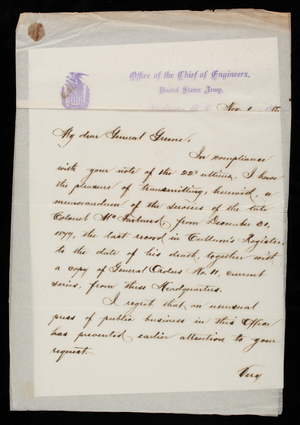 Office of the Chief of Engineers,
United States Army.
Nov. 1
My dear General Greene:
In compliance
with your note of the 22d ultimo, I have
the pleasure of transmitting, herewith, a
memorandum of the services of the late
Colonel McFarland, from December 31,
1877, the last record in Cullum's Register,
to the date of his death, together with
a copy of General Orders No. 11, current
series, from these Headquarters.
I regret that an unusual
press of public business in this Office
has prevented earlier attention to your
request.
Very